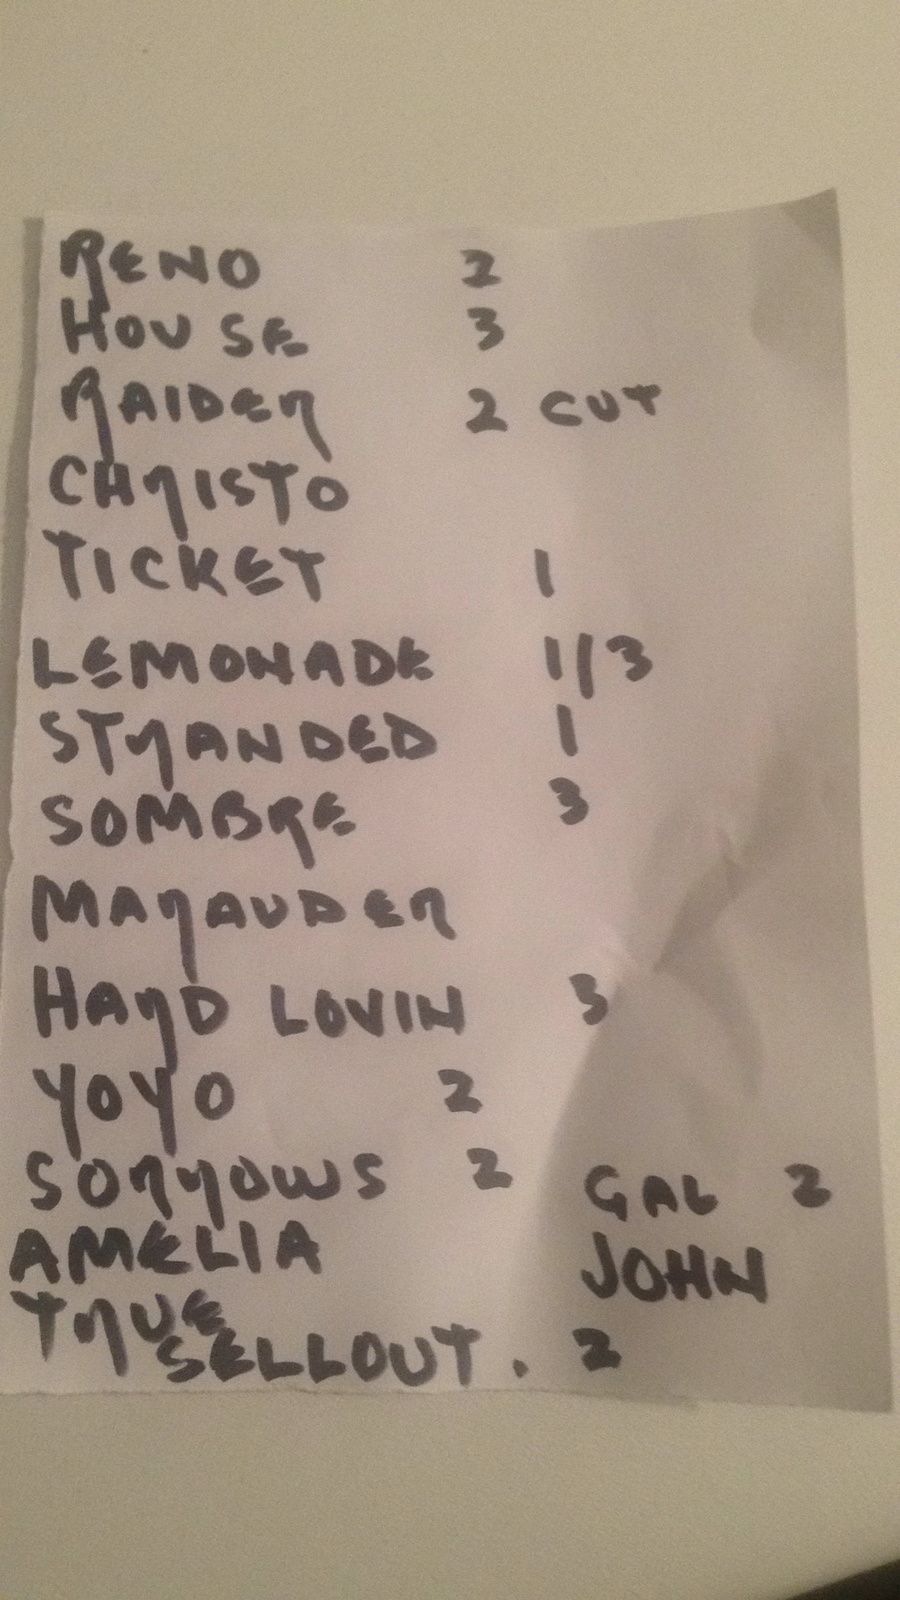 RENO 2
HOUSE 3
RAIDER 2 CUT
CHRISTO
TICKET 1
LEMONADE 1/3
STRANDED 1
SOMBRE 3
MARAUDER
HARD LOVIN 3
YOYO 2
SORROWS 2 GAL 2
AMELIA JOHN
TRUE
SELLOUT. 2